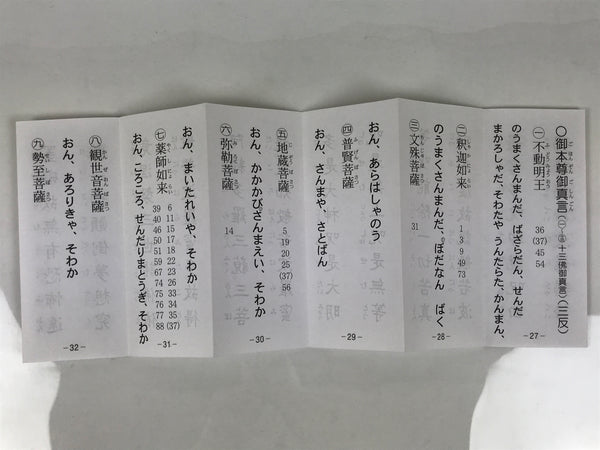 〇御本尊御真言(㊀〜㊂十三佛御真言)(三反)
㊀不動明王 36 (37) 45 54
のうまくさんまんだ、ばざらだん、せんだ
まかろしゃだ、そわたや うんたらた、かんまん、
-27-
㊁釈迦如来 1 3 9 49 73
のうまくさんまんだ、ぼだなん ばく
㊂文殊菩薩 31
-28-
おん、あらはしゃのう
㊃普賢菩薩
おん、さんまや、さとばん
-29-
㊄地蔵菩薩 5 19 20 25 (37) 56
おん、かかかびざんまえい、そわか
㊅弥勒菩薩 14
-30-
おん、まいたれいや、そわか
㊆薬師如来 6 11 15 17 18 22 23 26 33 34 35 (37)
39 40 46 50 51 59 67 74 75 76 77 88
おん、ころころ、せんだりまとうぎ、そわか
-31-
㊇観世音菩薩
おん、あろりきゃ、そわか
㊈勢至菩薩
-32-